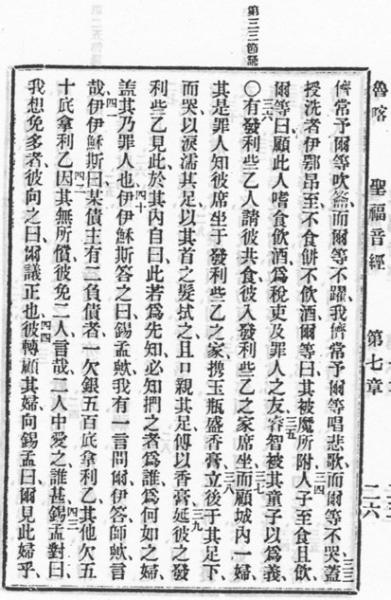 第三三節註
魯喀 聖福音經 第七章 二六
儕常予爾等吹籥而爾等不躍我儕常予爾等唱悲歌而爾等不哭蓋三三
授洗者伊鄂昂至不食餅不飲酒爾等曰其被魔所附人子至食且飲三四
爾等曰顧此人嗜食飲酒爲稅吏及罪人之友容智被其童子以爲義三五
三六〇有發利些乙人請彼共食彼入發利些乙之家席坐而顧城內一婦三七
其是罪人知彼席坐于發利些乙之家携玉瓶盛香膏立後于其足下三八
而哭以淚濡其足以其首之髮拭之且口親其足傅以香膏延彼之發三九
利些乙見此於其內自曰此若爲先知必知捫之者爲誰爲何如之婦
蓋其乃罪人也四〇伊伊穌斯答之曰錫孟歟我有一言問爾伊答師歟言
哉四一伊伊穌斯曰某債主有二負債者一欠銀五百底拿利乙其他欠五
十底拿利乙四二因其無所償彼免二人言哉二人中愛之誰甚錫孟對曰四三
我想免多者彼向之曰爾議正也四四彼轉顧其婦向錫孟曰爾見此婦乎